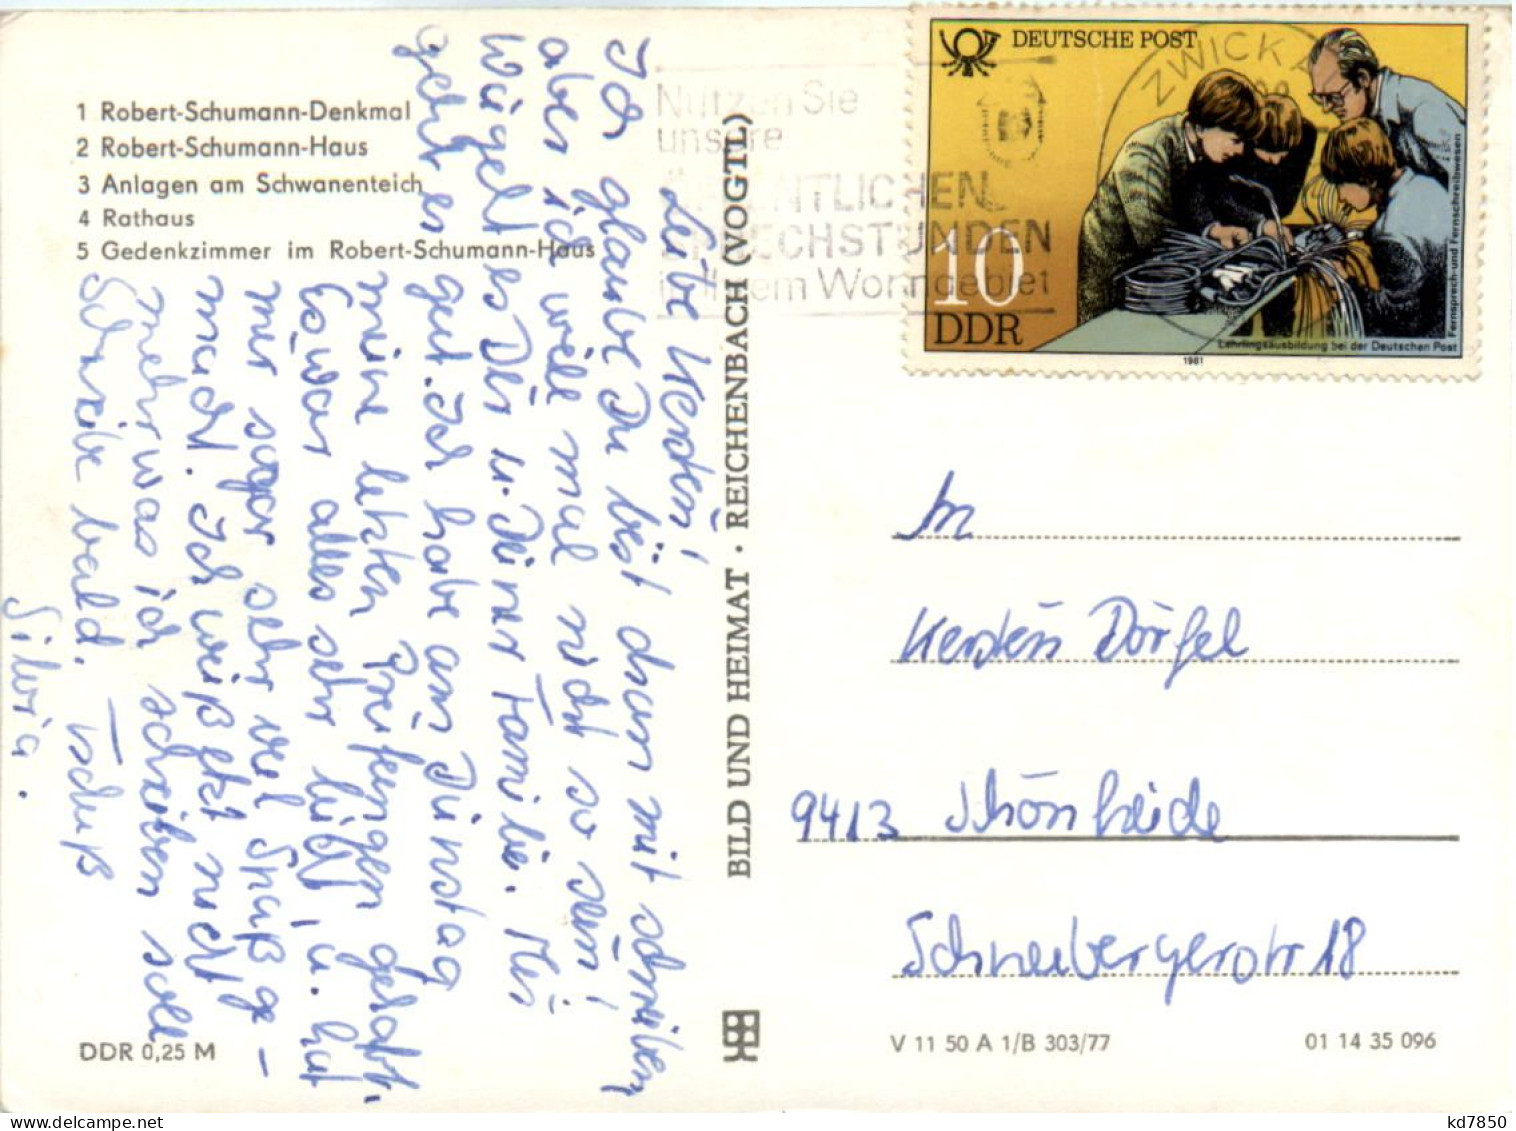 1 Robert-Schumann-Denkmal
2 Robert-Schumann-Haus
3 Anlagen am Schwanenteich
4 Rathaus
5 Gedenkzimmer im Robert-Schumann-Haus
Liebe Kerstin!
Ich glaube Du bist dran mit schreiben,
aber ich will mal nicht so sein!
Wie geht es Dir u. Deiner Familie. Mir
geht es
gut. Ich habe am Dienstag
meine letzten Prüfungen gehabt.
Es war alles sehr leicht, u. hat
mir sogar sehr viel Spaß ge-
macht. Ich weiß jetzt nicht
mehr was ich schreiben soll
Schreibe bald. Tschüß
Silvia.
DDR 0,25 M
BILD UND HEIMAT · REICHENBACH (VOGTL)
Nutzen Sie
unsere
ÖFFENTLICHEN
SPRECHSTUNDEN
in Ihrem Wohngebiet
ZWICKA
DEUTSCHE POST
10
DDR
Lehrlingsausbildung bei der Deutschen Post
Fernsprech- und Fernschreibwesen
1981
An
Kerstin Dörfel
9413 Schönheide
Schneebergerstr 18
V 11 50 A 1/B 303/77
01 14 35 096
kd7850